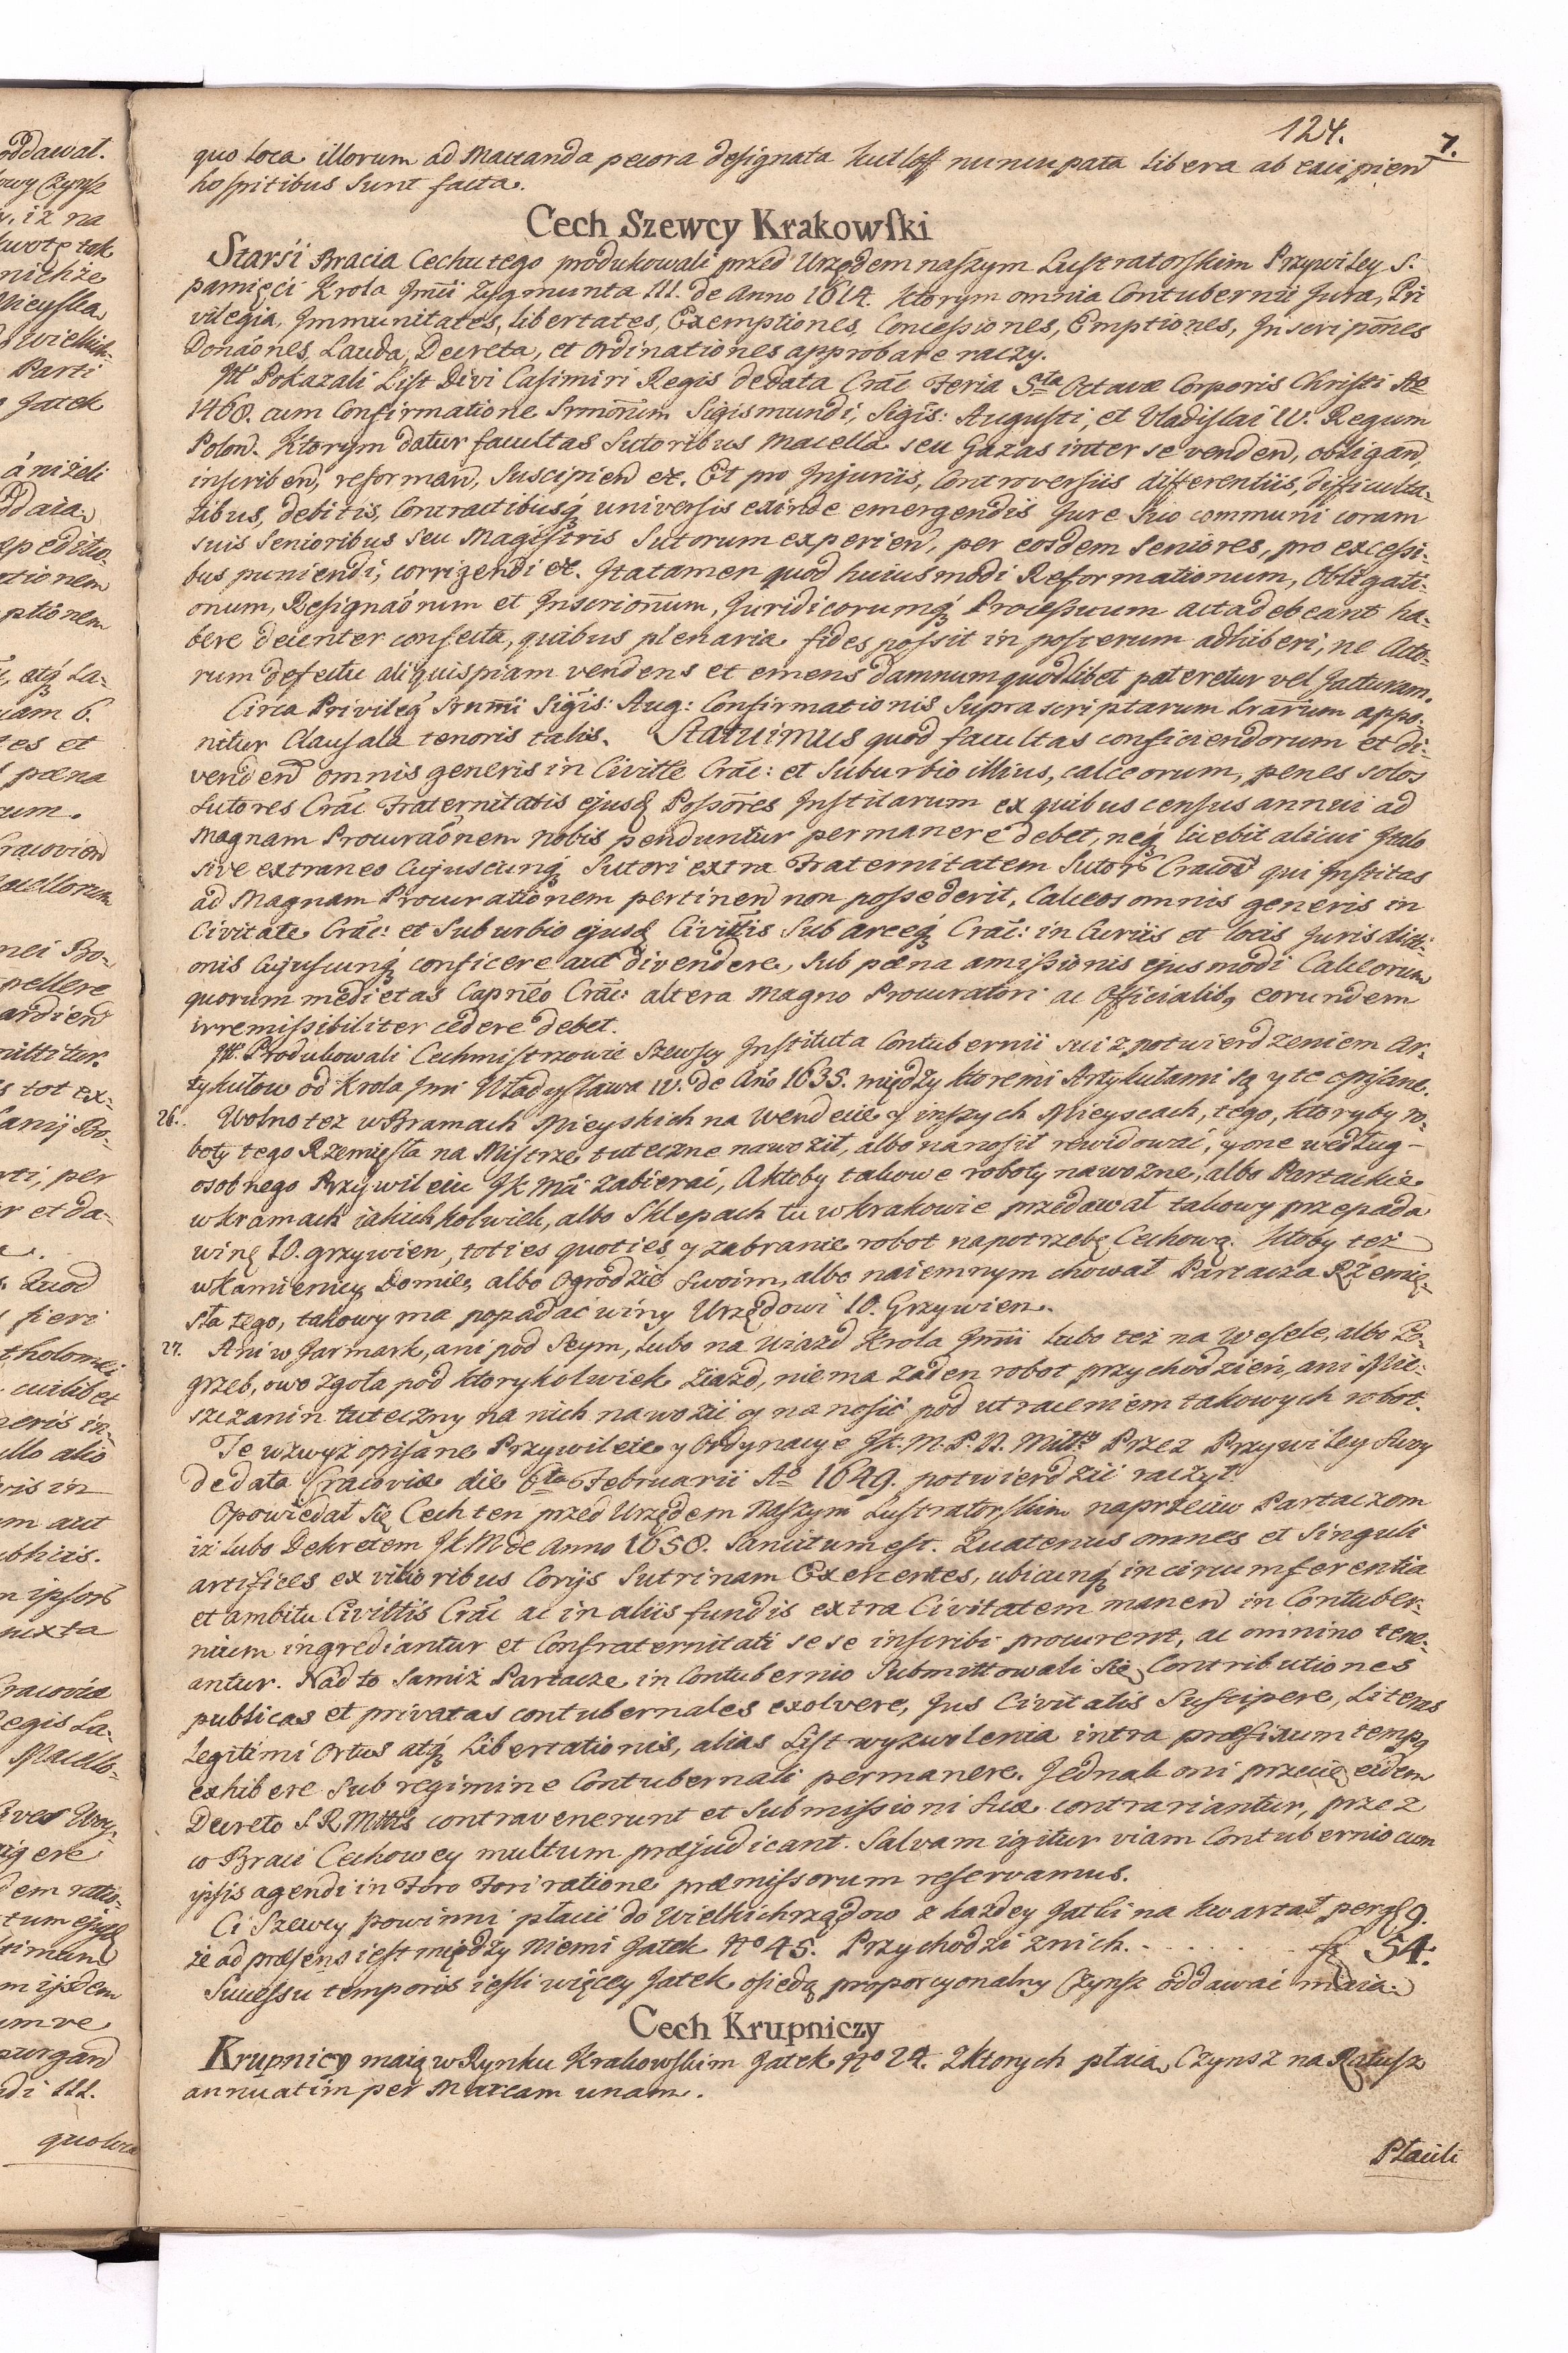 124.
7.
quo loca illorum ad Mactanda pecora designata Kutloff nuncupata libera ab excipiend
hospitibus sunt facta.
Cech Szewcy Krakowſki
Starśi Bracia Cechu tego produkowali przed Urzędem naſzym Luſtratorſkim Przywiley S.
pamięci Krola Jmći Zygmunta III. de Anno 1614. ktorym omnia Contubernii Jura, Pri
vilegia, Immunitates, libertates, Exemptiones, Conceſsiones, Emptiones, Inscripōnes
Donaōnes, Lauda, Decreta, et Ordinationes approbare raczy.
Itt Pokazali Liſt Divi Casimiri Regis de data Crāc Feria 5ta Octavæ Corporis Chriſti Ao
1460. cum Confirmatione Srmōrum Sigismundi, Sigis: Auguſti, et Vladislai IV. Regum
Polond. Ktorym datur facultas Sutoribus Macella seu Gazas inter se vendend, obligand,
inſcribend, reformand, Suscipiend etc. Et pro Injuriis, Controverſiis differentiis, difficulta-
tibus, debitis, Contractibusq universis exinde emergendis Jure Suo communi coram
suis Senioribus Seu Magiſtris Sutorum experiend, per eosdem Seniores, pro exceſsi-
bus puniendi, corrigendi etc. Ita tamen quod huiusmodi Reformationum, Obligati-
onum, Resignaōnum et Inscrionum, Juridicorumq Proceſsuum acta debeant ha-
bere decenter confecta, quibus plenaria fides poſsit in poſterum adhiberi, ne Acto-
rum defectu aliquispiam vendens et emens damnum quodlibet pateretur vel Jacturam.
Circa Privileg Srmi Sigis: Aug: Confirmationis Supra scriptarum Lrarum appo-
nitur Clausala tenoris talis. Statuimus quod facultas conficiendorum et di-
vendend omnis generis in Civitte Crac: et Suburbio illius, calceorum, penes solos
Sutores Crac Fraternitatis ejusd Poſsores Inſtitarum ex quibus census annui ad
Magnam Procuraōnem nobis penduntur permanere debet, neq licebit alicui Italo
sive extraneo cujuscunq Sutori extra Fraternitatem Sutor Cracov qui Inſtitas
ad Magnam Procurationem pertinend non poſsederit, Calceos omnis generis in
Civitate Crac: et Suburbio ejusd Civittis Sub arceq Crac: in Curiis et locis Jurisdicti-
onis cujuscunq conficere aut divendere, Sub pæna amiſsionis ejusmodi Calceorum
quorum medietas Capneo Crac: altera Magno Procuratori ac Officialibq eorundem
irremiſsibiliter cedere debet.
Itt. Produkowali Cechmiſtrzowie Szewscy Inſtituta Contubernii sui z potwierdzeniem Ar-
tykułow od Krola Jmi Władysława IV. de Año 1635. między ktoremi Artykułami są y te opisane.
26. Wolno też w Bramach Mieyskich na Wendecie y inſzych Mieyscach, tego, ktoryby ro-
boty tego Rzemięsła na Miſtrze tuteczne nawoził, albo nanosił rewidować, y one według
osobnego Przywileiu JK Mci zabierać, A ktoby takowe roboty nawozne, albo Partackie
w kramach iakichkolwiek, albo Sklepach tu w Krakowie przedawał takowy przepada
winę 10. grzywien, toties quoties, y zabranie robot na potrzebę Cechową. Ktoby też
w kamienicy, Domie, albo Ogrodzie swoim, albo naiemnym chował Partacza Rzemię-
sła tego, takowy ma popadać winy Urzędowi 10. Grzywien.
27. Ani w Jarmark, ani pod Seym, lubo na Uiazd Krola Jmci lubo też na Wesele, albo Po-
grzeb, owo zgoła pod ktorykolwiek Ziazd, nie ma żaden robot przychodzień, ani Mie-
szczanin tuteczny na nich nawozić y nanosić pod utraceniem takowych robot.
Te wzwyż opisane Przywileie y Ordynacye JK. M. P. N. Mitts Przez Przywiley Swoy
de data Cracoviæ die 6ta Februarii Ao 1649. potwierdzić raczył.
Opowiedał się Cech ten przed Urzędem Naszym Luſtratorſkim naprzeciw Partaczom
iż lubo Dekretem JKM de Anno 1650. Sancitum eſt. Quatenus omnes et Singuli
artifices ex vilioribus Corijs Sutrinam Exercentes, ubicunq in circumferentia
et ambitu Civittis Crac ac in aliis fundis extra Civitatem manend in Contuber-
nium ingrediantur et Confraternitati sese inscribi procurent, ac omnino tene-
antur. Nad to Samiż Partacze in Contubernio Submittowali się, Contributiones
publicas et privatas contubernales exolvere, Jus Civitatis Suscipere, Literas
Legitimi Ortus atq Libertationis, alias Liſt wyzwolenia intra præfixum tempq
exhibere Sub regimine Contubernali permanere. Jednak oni przecie eidem
Decreto S R Mttis contravenerunt et Submiſsioni Suæ contrariantur, przez
co Braci Cechowey multum præjudicant. Salvam igitur viam Contubernio cum
ipsis agendi in Foro Fori ratione præmiſsorum reservamus.
Ci Szewcy powinni płacić do Wielkichrządow z każdey Jatki na kwartał per gl 9.
że ad præsens ieſt między niemi Jatek No 45. Przychodzi z nich. . . . . . . . fl 54:
Succeſsu temporis iesli więcey Jatek osiedą proporcyonalny Czynsz oddawać maią.
Cech Krupniczy
Krupnicy maią w Rynku Krakowſkim Jatek No 24. Z ktorych płacą Czynsz na Ratusz
annuatim per Marcam unam.
Płacili